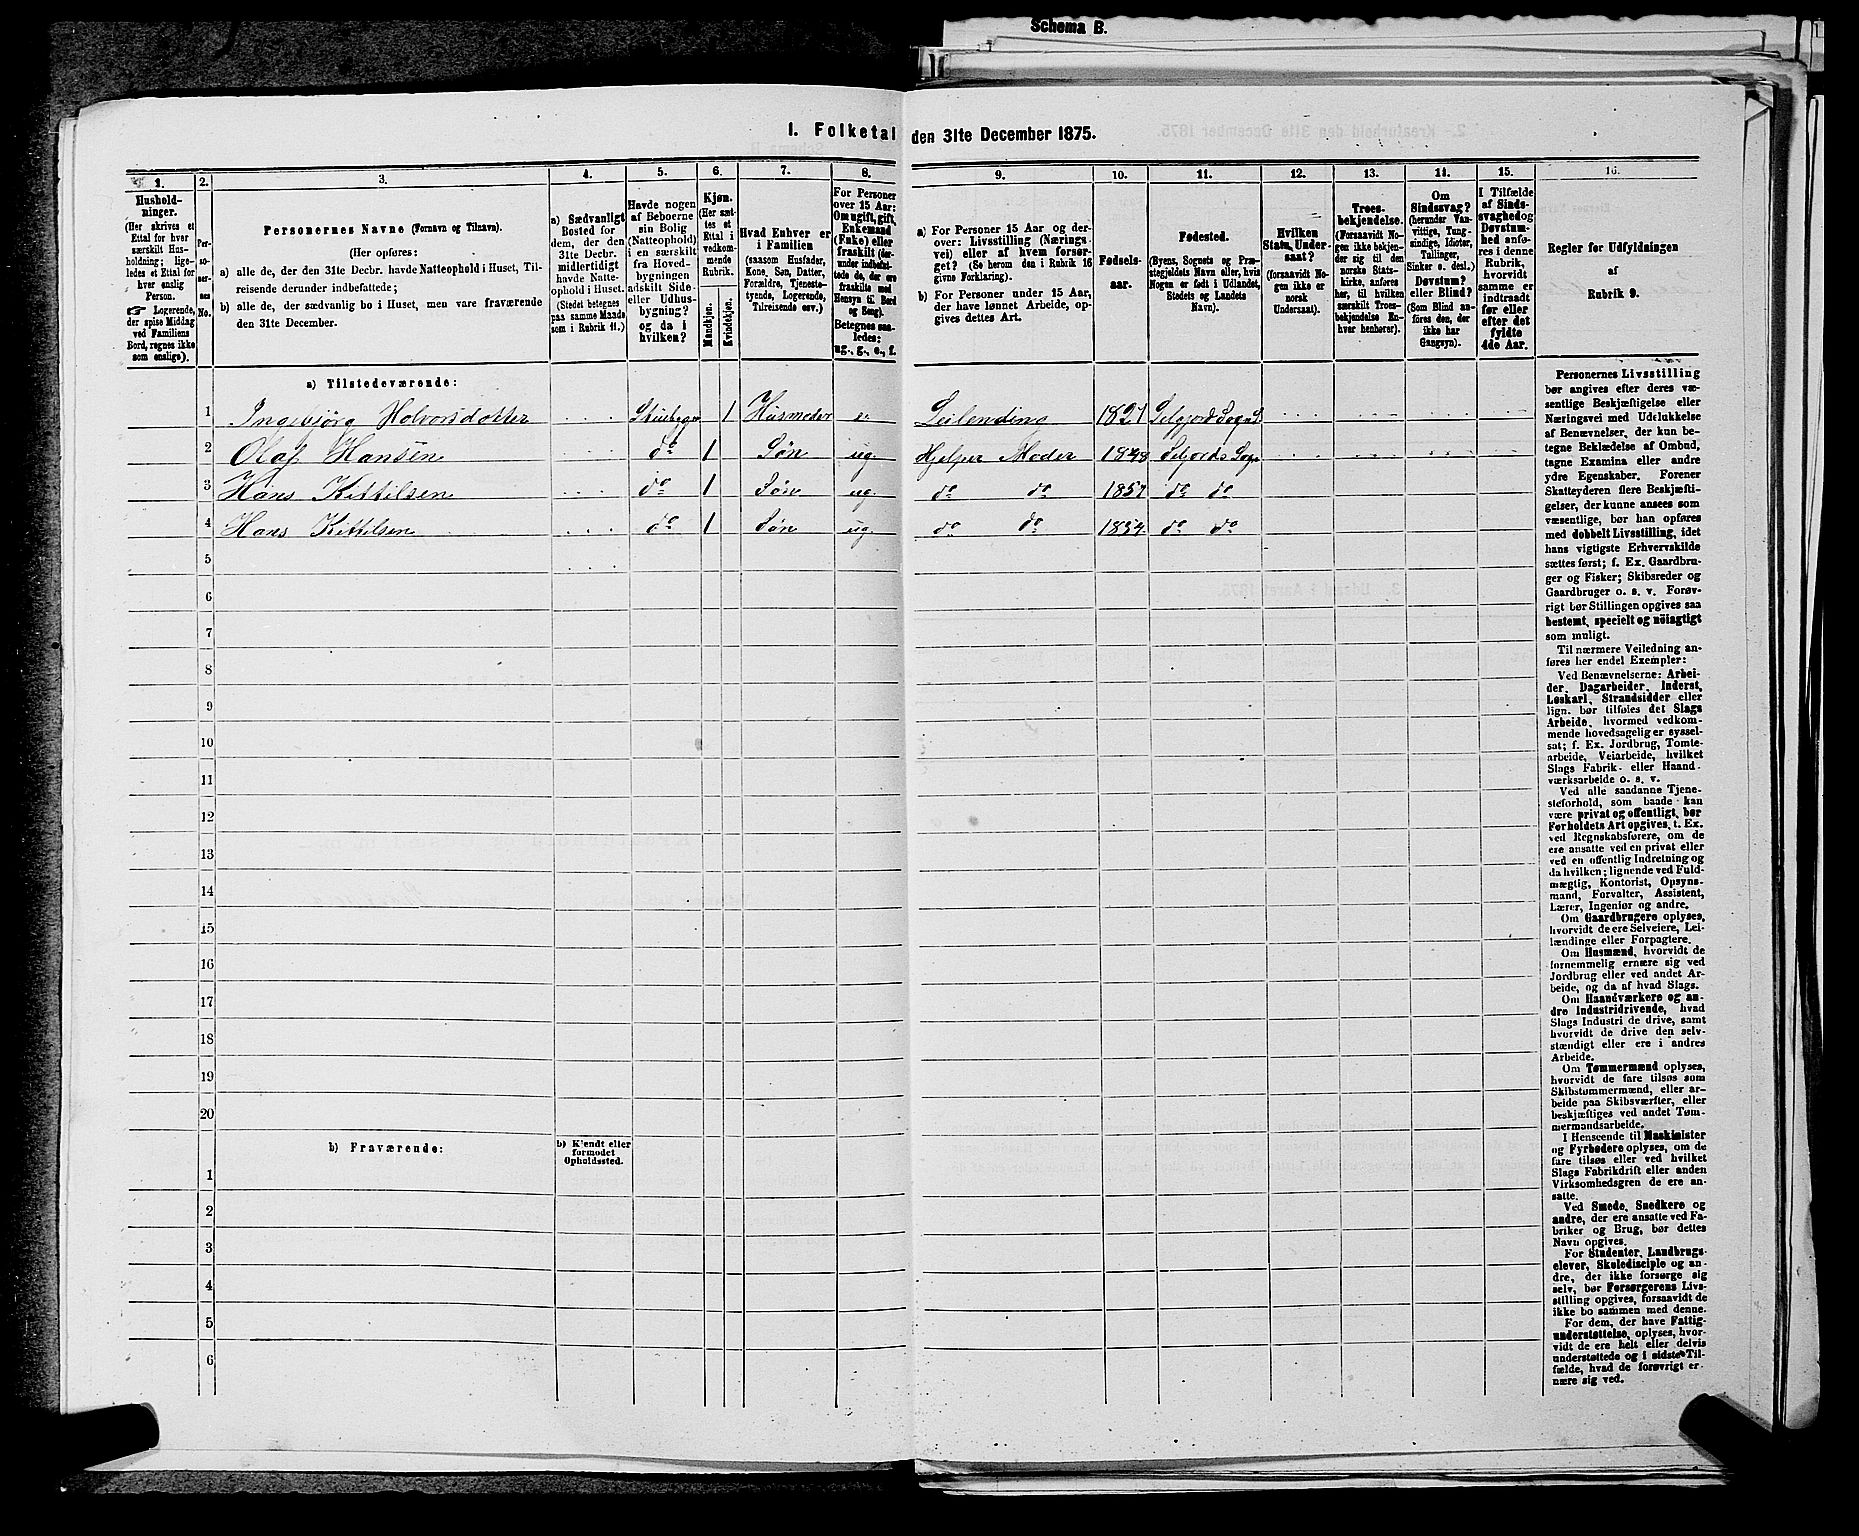 Schema B.
I. Folketal den 31te December 1875.
1. 2. 3. 4. 5. 6. 7. 8. 9. 10. 11. 12. 13. 14. 15. 16.
Husholdninger.
(Her skrives et
Ettal for hver
særskilt Husholdning;
ligeledes
et Ettal for
hver enslig
Person.
☞ Logerende,
der spise Middag
ved Familiens
Bord, regnes ikke
som enslige).
Personernes No.
Personernes Navne (Fornavn og Tilnavn).
(Her opføres:
a) alle de, der den 31te Decbr. havde Natteophold i Huset, Tilreisende
derunder indbefattede;
b) alle de, der sædvanlig bo i Huset, men vare fraværende
den 31te December.
a) Sædvanligt
Bosted for
dem, der den
31te Decbr.
midlertidigt
havde Natteophold
i Huset.
(Stedet betegnes
paa samme Maade
som i Rubrik 11.)
Havde nogen
af Beboerne
sin Bolig
(Natteophold)
i en særskilt
fra Hovedbygningen
adskilt Side-
eller Udhusbygning?
og da i
hvilken?
Kjøn.
(Her sættes
et
Ettal i
vedkommende
Rubrik.
Mandkjøn.
Kvindekjøn.
Hvad Enhver er
i Familien
(saasom Husfader,
Kone, Søn, Datter,
Forældre, Tjenestetyende,
Logerende,
Tilreisende osv.)
For Personer
over 15 Aar:
Om ugift, gift,
Enkemand
(Enke) eller
fraskilt (derunder
indbefattede
de, der ere
fraskilte med
Hensyn til Bord
og Seng).
Betegnes saaledes:
ug., g., e., f.
a) For Personer 15 Aar og derover:
Livsstilling (Næringsvei)
eller af hvem forsørget?
(Se herom den i Rubrik 16
givne Forklaring).
b) For Personer under 15 Aar,
der have lønnet Arbeide, opgives
dettes Art.
Fødselsaar.
Fødested.
(Byens, Sognets og Præstegjeldets
Navn eller, hvis
Nogen er født i Udlandet,
Stedets og Landets
Navn).
Hvilken
Stats Undersaat?
(forsaavidt Nogen
ikke er
norsk
Undersaat).
Troesbekjendelse.
(Forsaavidt Nogen
ikke bekjender
sig til den
norske Statskirke,
anføres
her, til hvilken
særskilt Troesbekjendelse
Enhver
henhører).
Om
Sindssvag?
(herunder Vanvittige,
Tungsindige,
Idioter,
Tullinger,
Sinker o. desl.)
Døvstum?
eller Blind?
(Som Blind anføres
den, der
ikke har
Gangsyn).
I Tilfælde
af Sindssvaghed
og
Døvstumhed
anføres
i denne
Rubrik,
hvorvidt
samme er
indtraadt
før eller
efter det
fyldte
4de Aar.
Regler for Udfyldningen
af
Rubrik 9.
a) Tilstedeværende:
1 Ingebjörg Holvorsdotter Husmoder e 1 Leilending 1821
2 Olaf Hansen do 1 Søn ug. Hjelper Moder 1848 Seljords Sogn
3 Hans Kittilsen do 1 Søn ug. do do 1851 do do
4 Hans Kittilsen do 1 Søn ug. do do 1854 do do
5
6
7
8
9
10
11
12
13
14
15
16
17
18
19
20
b) Fraværende: b) Kjendt eller
formodet
Opholdssted.
1
2
3
4
5
6
Personernes Livsstilling
bør angives efter deres væsentlige
Beskjæftigelse eller
Næringsvei med Udelukkelse
af Benævnelser, der kun betegne
Beklædelse af Ombud,
tagne Examina eller andre
ydre Egenskaber. Forener
Skatteyderen flere Beskjæftigelser,
der kunne ansees som
væsentlige, bør han opføres
med dobbelt Livsstilling, idet
hans vigtigste Erhvervskilde
sættes først; f. Ex. Gaardbruger
og Fisker; Skibsreder og
Gaardbruger o. s. v. Forøvrigt
bør Stillingen opgives saa
bestemt, specielt og nöiagtigt
som muligt.
Til nærmere Veiledning anføres
her endel Exempler:
Ved Benævnelserne: Arbeider,
Dagarbeider, Inderst,
Løskarl, Strandsidder eller
lign. bør tilføies det Slags
Arbeide, hvormed vedkommende
hovedsagelig er sysselsat;
f. Ex. Jordbrug, Tomtearbeide,
Veiarbeide, hvilket
Slags Fabrik- eller Haandværksarbeide
o. s. v.
Ved alle saadanne Tjenesteforhold,
som baade kan
være privat og offentligt, bør
Forholdets Art opgives, t. Ex.
ved Regnskabsførere, om de
ere ansatte ved en privat eller
ved en offentlig Indretning og
da hvilken; lignende ved Fuldmægtig,
Kontorist, Opsynsmand,
Forvalter, Assistent,
Lærer, Ingeniør og andre.
Om Gaardbrugere oplyses,
hvorvidt de ere Selveiere, Leilændinge
eller Forpagtere.
Om Husmænd, hvorvidt de
fornemmelig ernære sig ved
Jordbrug eller ved andet Arbeide,
og da af hvad Slags.
Om Haandværkere og andre
Industridrivende, hvad
Slags Industri de drive, samt
hvorvidt de drive den selvstændigt
eller ere i andres
Arbeide.
Om Tømmermænd oplyses,
hvorvidt de fare tilsøs som
Skibstømmermænd, eller arbeide
paa Skibsværfter, eller
beskjæftiges ved andet Tømmermandsarbeide.
I Henseende til Maskinister
og Fyrbødere oplyses, om de
fare tilsøs eller ved hvilket
Slags Fabrikdrift eller anden
Virksomhedsgren de ere ansatte.
Ved Smede, Snedkere og
andre, der ere ansatte ved Fabriker
og Brug, bør dettes
Navn opgives.
For Studenter, Landbrugselever,
Skoledisciple og andre,
der ikke forsørge sig
selv, bør Forsørgerens Livsstilling
opgives, forsaavidt de
ikke bo sammen med denne.
For dem, der have Fattigunderstøttelse,
oplyses, hvorvidt
de ere helt eller delvis
understøttede og i sidste Tilfælde,
hvad de forøvrigt ernære
sig ved.